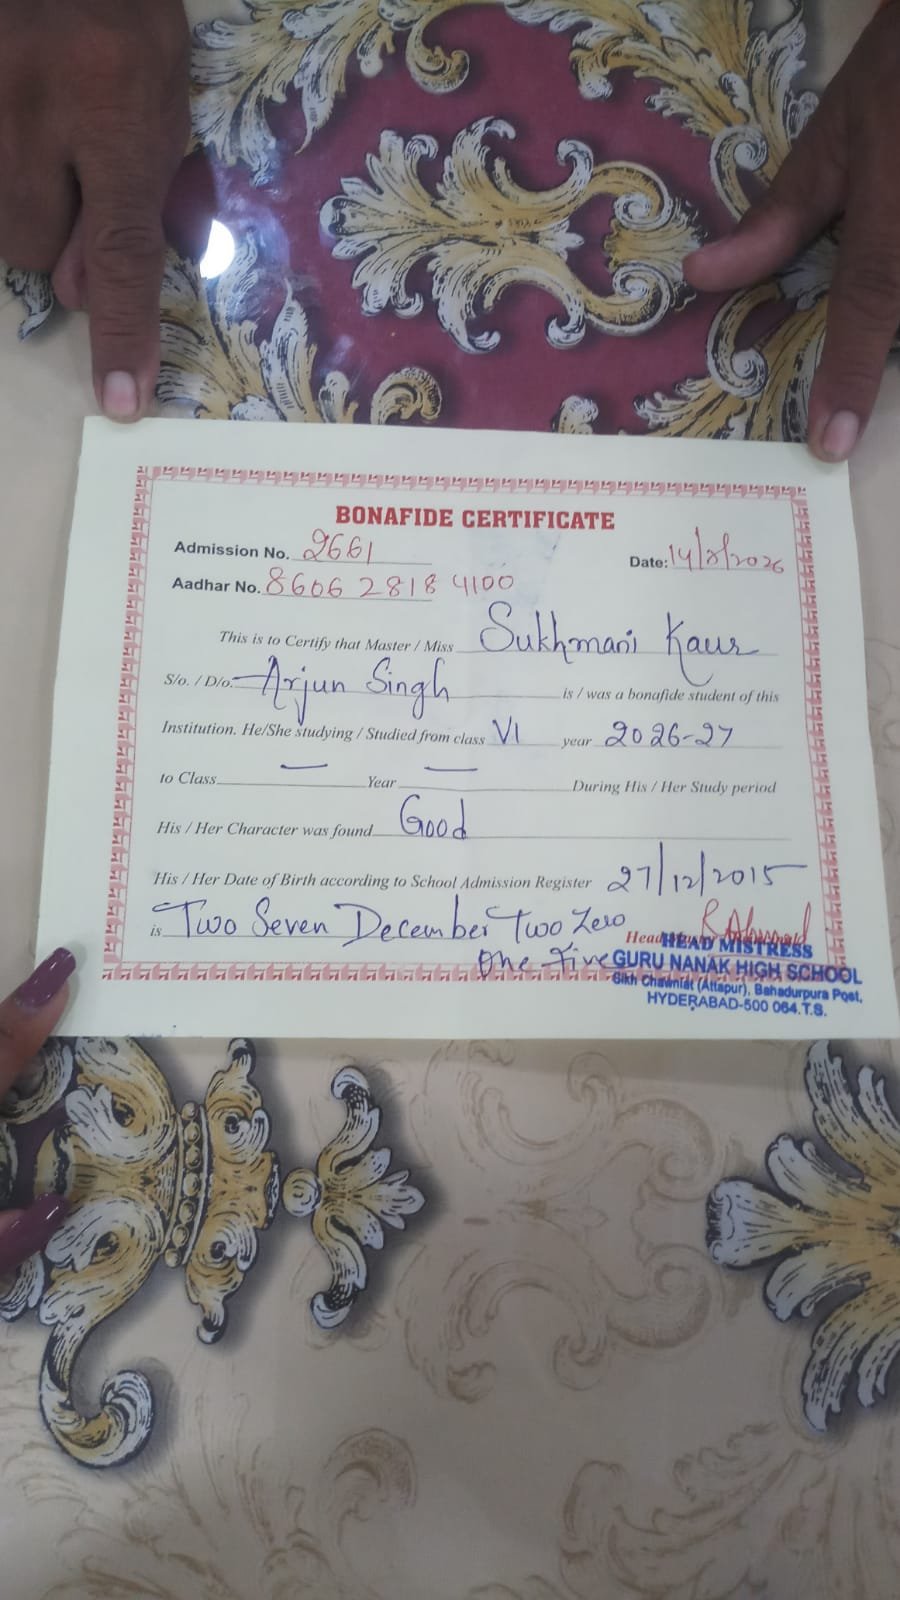 BONAFIDE CERTIFICATE
Admission No. 2661
Date: 14/8/2026
Aadhar No. 8606 2818 4100
This is to Certify that Master / Miss Sukhmani Kaur
S/o. / D/o. Arjun Singh is / was a bonafide student of this
Institution. He/She studying / Studied from class VI year 2026-27
to Class — Year — During His / Her Study period
His / Her Character was found Good
His / Her Date of Birth according to School Admission Register 27/12/2015
is Two Seven December Two Zero
One Five
HEAD MISTRESS
GURU NANAK HIGH SCHOOL
Sikh Chawniat (Attapur), Bahadurpura Post,
HYDERABAD-500 064.T.S.